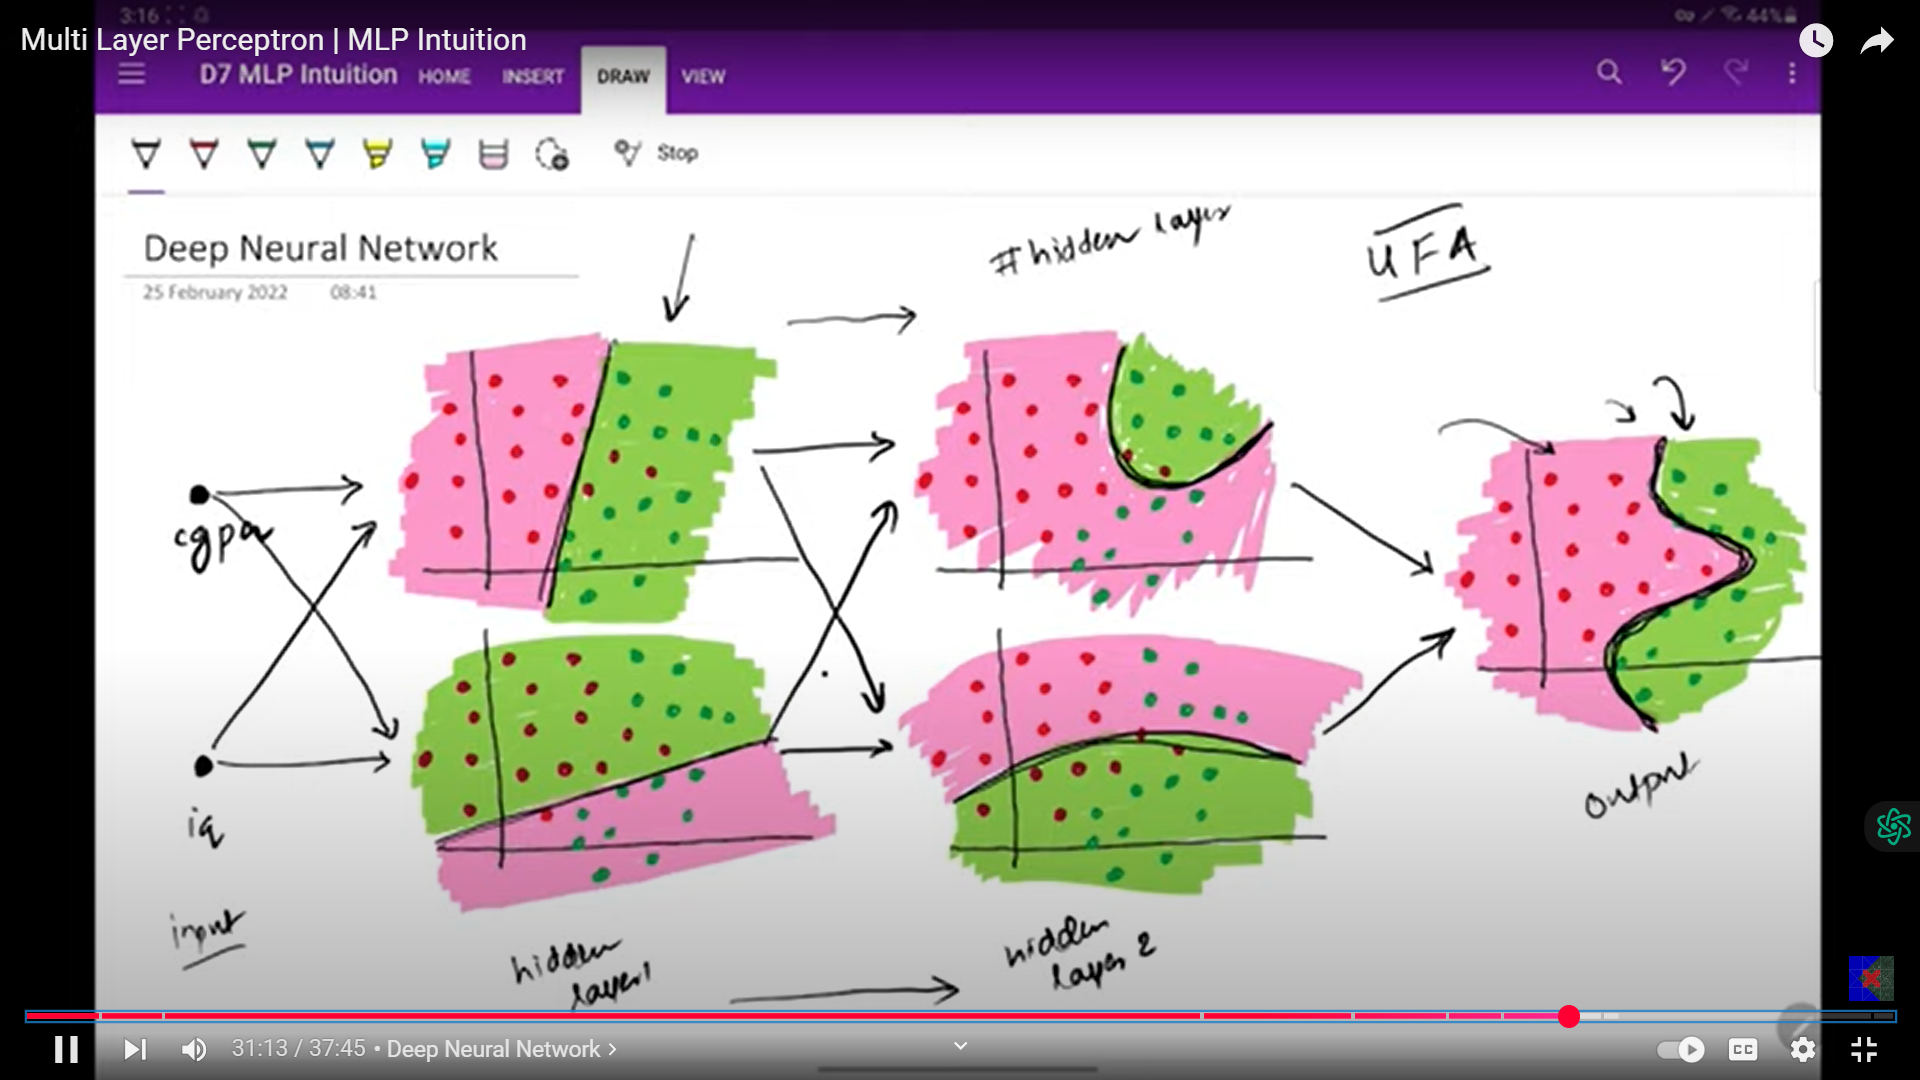 3:16
44%
Multi Layer Perceptron | MLP Intuition
D7 MLP Intuition HOME INSERT DRAW VIEW
Stop
Deep Neural Network
25 February 2022 08:41
#hidden layer
UFA
cgpa
iq
input
hidden
layer1
hidden
layer 2
output
31:13 / 37:45 • Deep Neural Network
CC